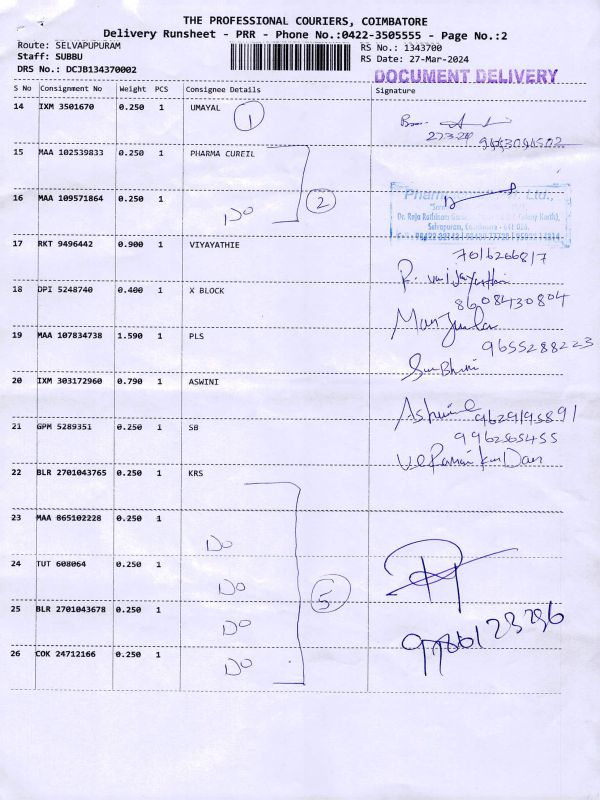 THE PROFESSIONAL COURIERS, COIMBATORE
Delivery Runsheet - PRR - Phone No.:0422-3505555 - Page No.:2
Route: SELVAPUPURAM
RS No.: 1343700
Staff: SUBBU
RS Date: 27-Mar-2024
DRS No.: DCJB134370002
DOCUMENT DELIVERY
S No Consignment No Weight PCS Consignee Details Signature
14 IXM 3501670 0.250 1 UMAYAL
1
15 MAA 102539833 0.250 1 PHARMA CUREIL
16 MAA 109571864 0.250 1
Do
2
Ltd.,
17 RKT 9496442 0.900 1 VIYAYATHIE
7016266817
18 DPI 5248740 0.400 1 X BLOCK
8608430804
19 MAA 107834738 1.590 1 PLS
9655288223
20 IXM 303172960 0.790 1 ASWINI
9629195891
21 GPM 5289351 0.250 1 SB
9962565455
22 BLR 2701043765 0.250 1 KRS
23 MAA 865102228 0.250 1
Do
24 TUT 608064 0.250 1
Do
5
25 BLR 2701043678 0.250 1
Do
26 COK 24712166 0.250 1
Do